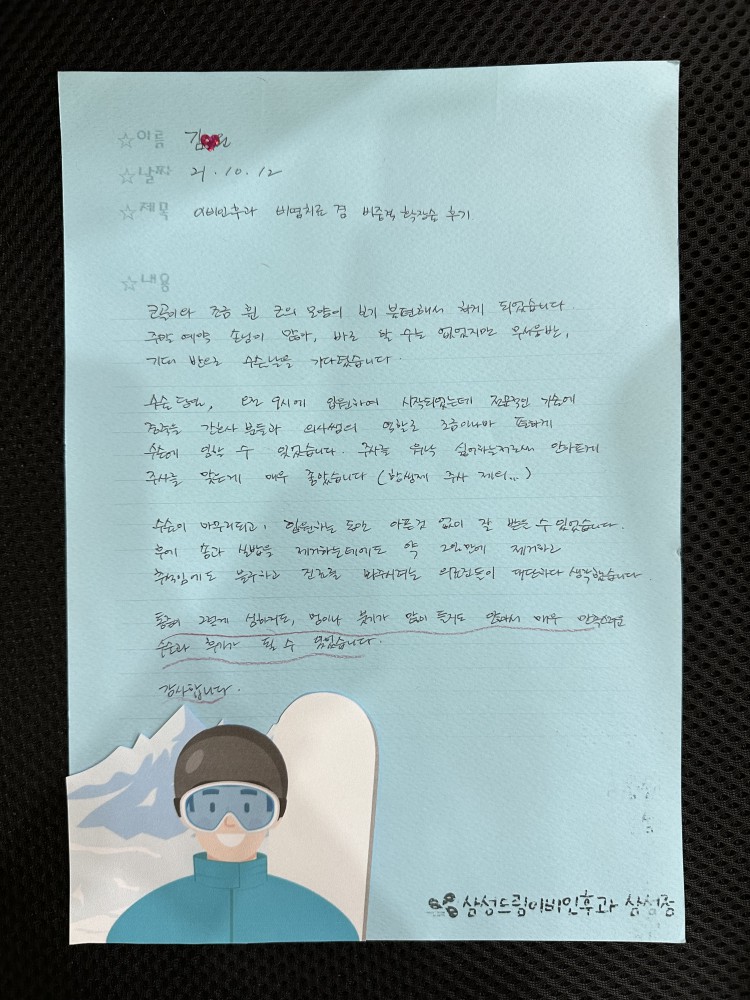 ☆이름 김
☆날짜 21.10.12
☆제목 이비인후과 비염치료 겸 비중격 확장술 후기
☆내용
코골이와 조금 휜 코의 모양이 보기 불편해서 하게 되었습니다.
주말 예약 손님이 많아, 바로 할 수는 없었지만
기대 반으로 수술날을 기다렸습니다.
수술 당일, 오전 9시에 입원하여 시작되었는데 전문적인 가슴에
간호사분들과 의사쌤의 역할로 조금이나마 편하게
수술에 임할 수 있었습니다. 주사를 워낙 싫어하는지라 안아프게
주사를 맞는게 매우 좋았습니다 (항생제 주사 제외...)
수술이 마무리되고, 입원하는 동안 아픈것 없이 잘 받을 수 있었습니다.
후에 솜과 실밥을 제거하는데에도 약 2일만에 제거하고
주말임에도 불구하고 진료를 봐주시려는 의료진들이 대단하다 생각했습니다
통증이 그렇게 심하지도, 멍이나 붓기가 많이 들지도 않아서 매우 만족스러운
수술과 후기가 될 수 있었습니다.
감사합니다.
삼성드림이비인후과 삼성점